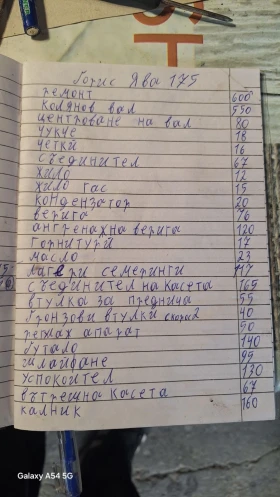 Борис Ява 175
ремонт 600
колянов вал 550
центроване на вал 80
чукче 18
четки 16
съединител 67
жило 12
жило газ 15
кондензатор 20
верига 76
ангренажна верига 120
горнитури 17
масло 23
лагери семеринги 117
съединител на касета 165
втулка за предница 55
бронзови втулки скорости 40
решах апарат 50
бутало 140
шлайфане 99
успокоител 130
вътрешна касета 67
калник 160
Galaxy A54 5G